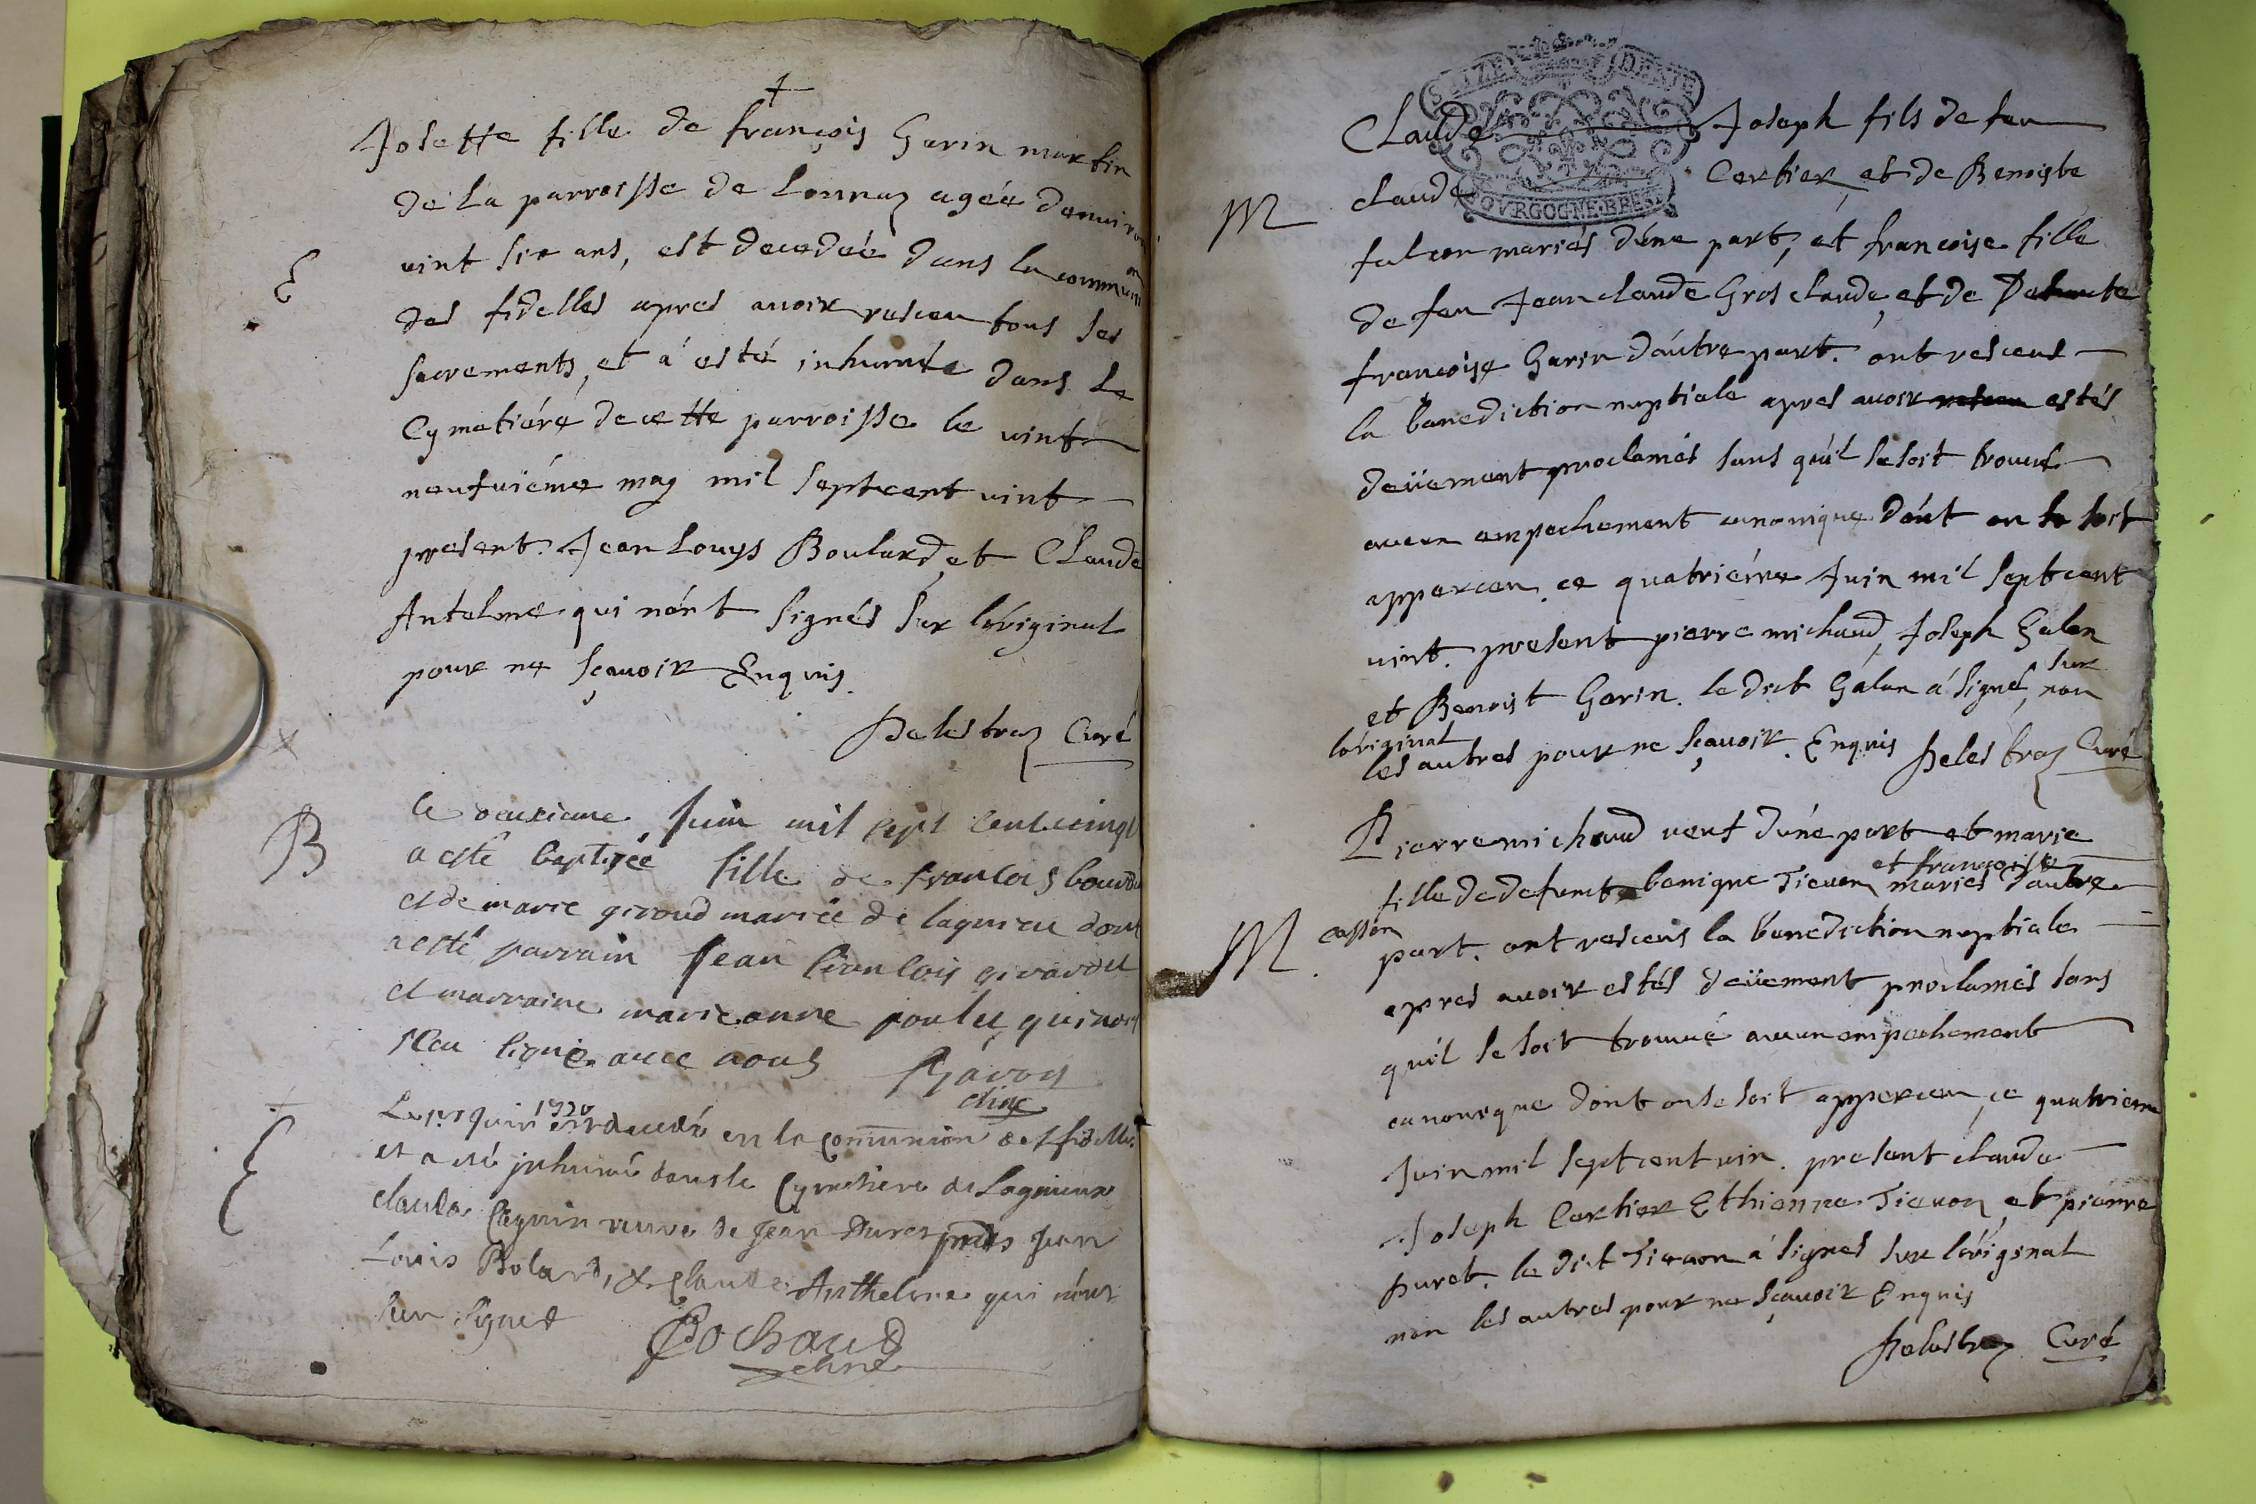 †
Josette fille de françois Garin martin
de la parroisse de Lonnaz agée denuiron
E
uint six ans, est decedée dans la communion
des fidelles apres auoir resceu tous ses
sacrements, et a esté inhumée dans le
Cymetiére de cette parroisse le uint
neufuiéme may mil septcent uint
present. Jean Louys Boulard, et Claude
Antelme qui nónt signés sur lóriginal
pour ne sçauoir Enquis.
Delestraz Curé
B
le deuxieme Juin mil sept cent
a esté baptisée fille de francois
et de marie giroud mariée de lagnieu dont
a esté parrain Jean francois girardet
et marraine marieanne poulet qui nont
sceu signé auec nous
1720
decedé en la Communion des fidelles
E
et a été inhumé dans le Cymetiere de Lagnieux
clauda veuve de Jean pnts Jean
Louis Bolard, & Claude Anthelme qui n'ont
sceu signer
Cochard
SEIZE DENIE
BOVRGOGNE BRESSE
Claude Joseph fils de feu
M
claude Certier, et de Benoiste
falcon mariés d'úne part, et francoise fille
de feu Jean claude Gros claude, et de
francoise Garin dáutre part. ónt resceus
la benediction nuptiale apres auoir estés
deüement proclamés sans qu'il se soit trouué
aucun empechement canonique dónt on se soit
apperceu. ce quatriéme Juin mil septcent
uint. present pierre michaud, Joseph Galan
et Benoist Garin. le dict Gálan a signé, sur
lóriginal non
les autres pour ne sçauoir. Enquis Delestraz Curé
Pierre michaud ueuf dúne part et marie
et françoise
fille de defunct benigne Tieuon mariés dautre
M
casson
part. ont resceus la benediction nuptiale
apres auoir estés deüement proclamés sans
qu'il se soit trouué aucun empechement
canonique dont on se soit apperceu, ce quatrieme
Juin mil septcent uin. present claude
Joseph Certier Ethienne Tieuon, et pierre
Duret. le dict Tieuon a signes sur lóriginal
non les autres pour ne sçauoir Enquis
Delestraz Curé